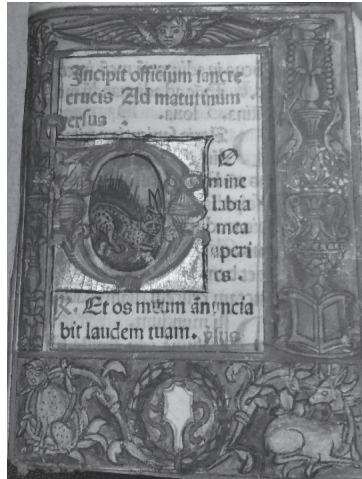 Incipit officium sancte
crucis Ad matutinum
versus
O
mine
labia
mea
aperi
es.
℟. Et os meum añuncia
bit laudem tuam. psus